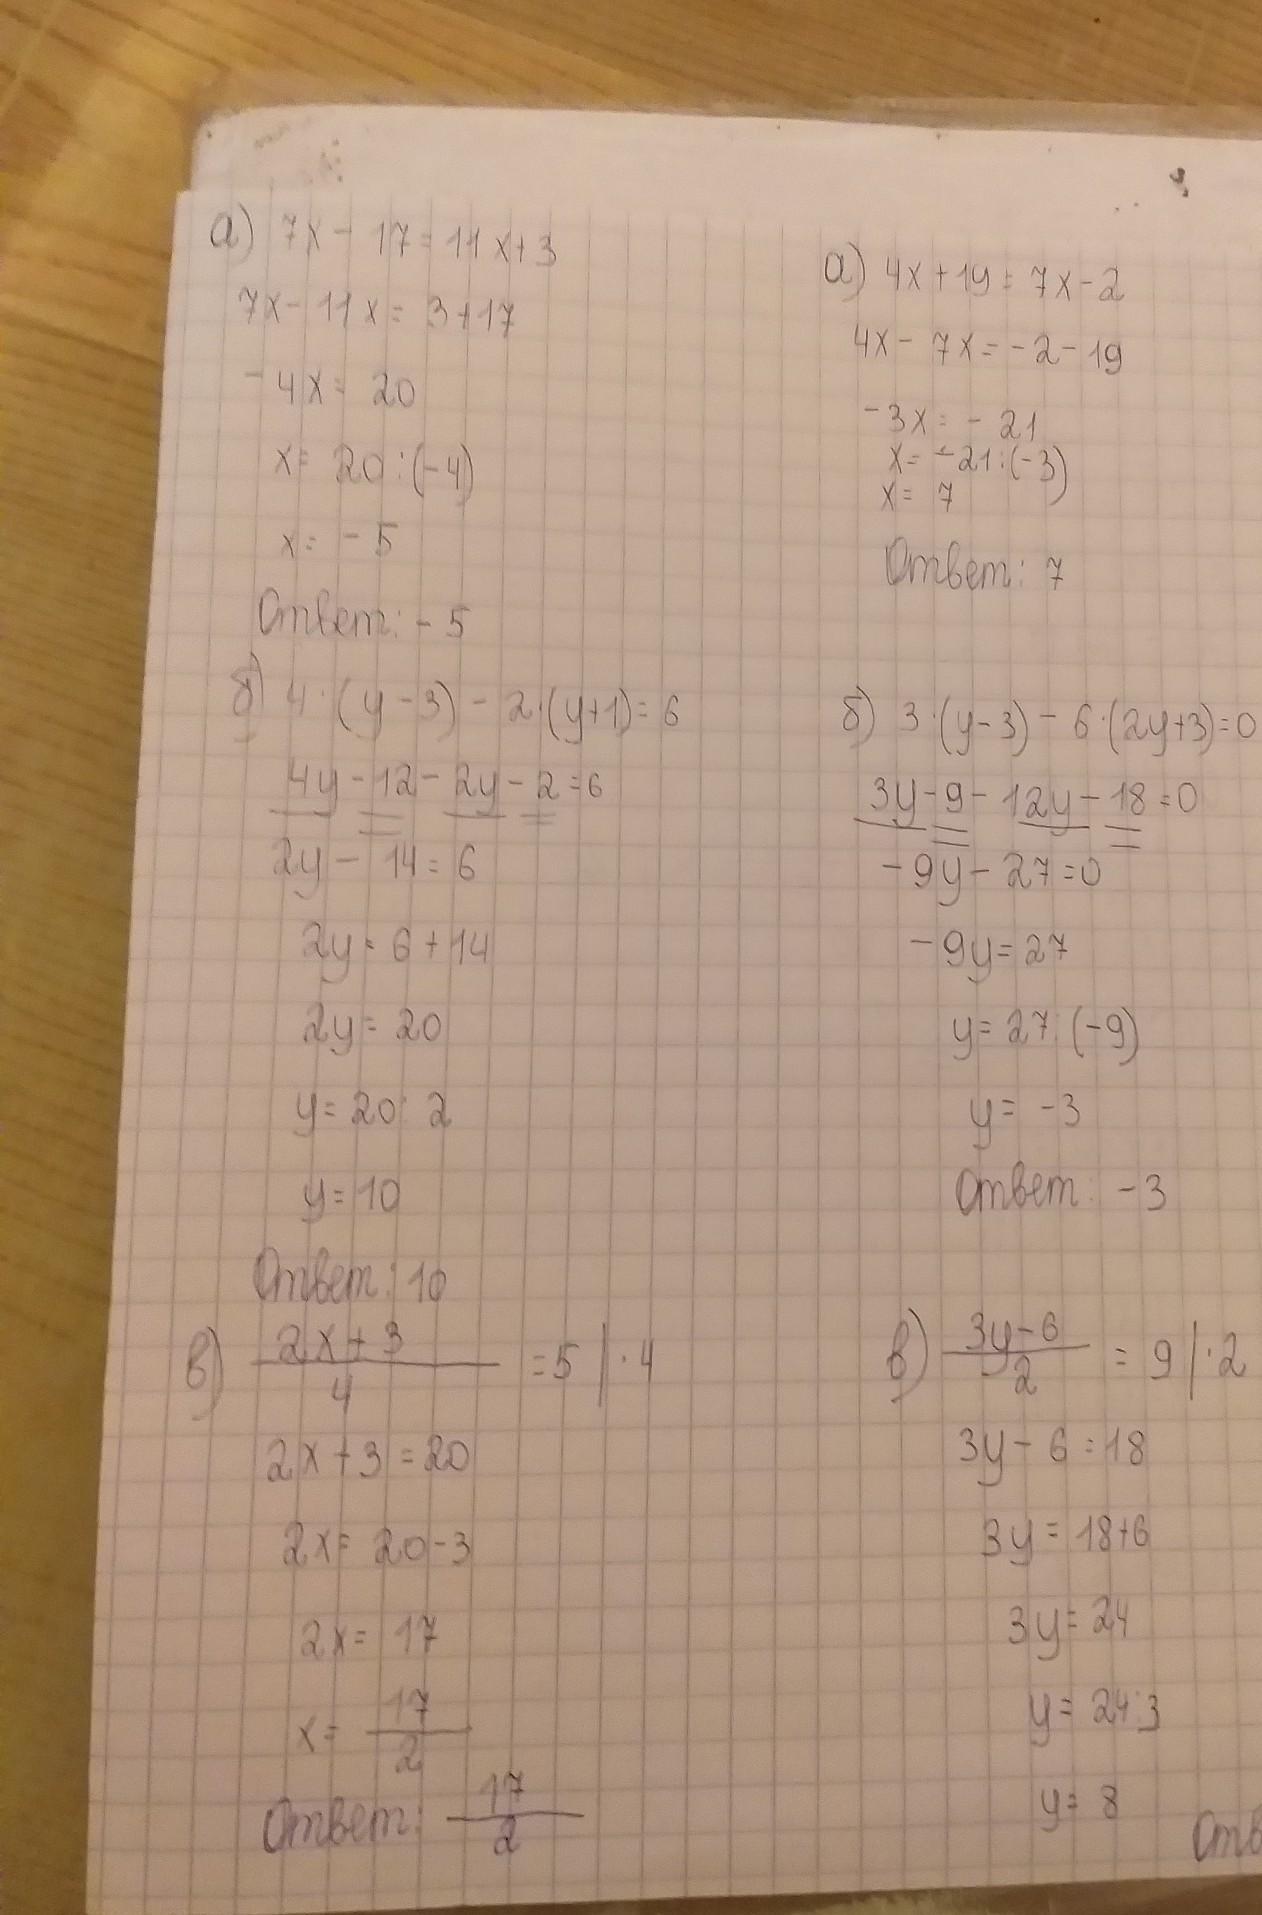 а) 7x - 17 = 11x+3
7x - 11x = 3+17
-4x = 20
x = 20:(-4)
x = -5
Ответ: -5
б) 4·(y-3) - 2·(y+1) = 6
4y - 12 - 2y - 2 = 6
2y - 14 = 6
2y = 6 + 14
2y = 20
y = 20:2
y = 10
Ответ: 10
в) \frac{2x+3}{4} = 5 |·4
2x + 3 = 20
2x = 20 - 3
2x = 17
x = \frac{17}{2}
Ответ: \frac{17}{2}
а) 4x+19 = 7x-2
4x - 7x = -2 - 19
-3x = -21
x = -21:(-3)
x = 7
Ответ: 7
б) 3·(y-3) - 6·(2y+3) = 0
3y - 9 - 12y - 18 = 0
-9y - 27 = 0
-9y = 27
y = 27:(-9)
y = -3
Ответ: -3
в) \frac{3y-6}{2} = 9 |·2
3y - 6 = 18
3y = 18+6
3y = 24
y = 24:3
y = 8
Отв